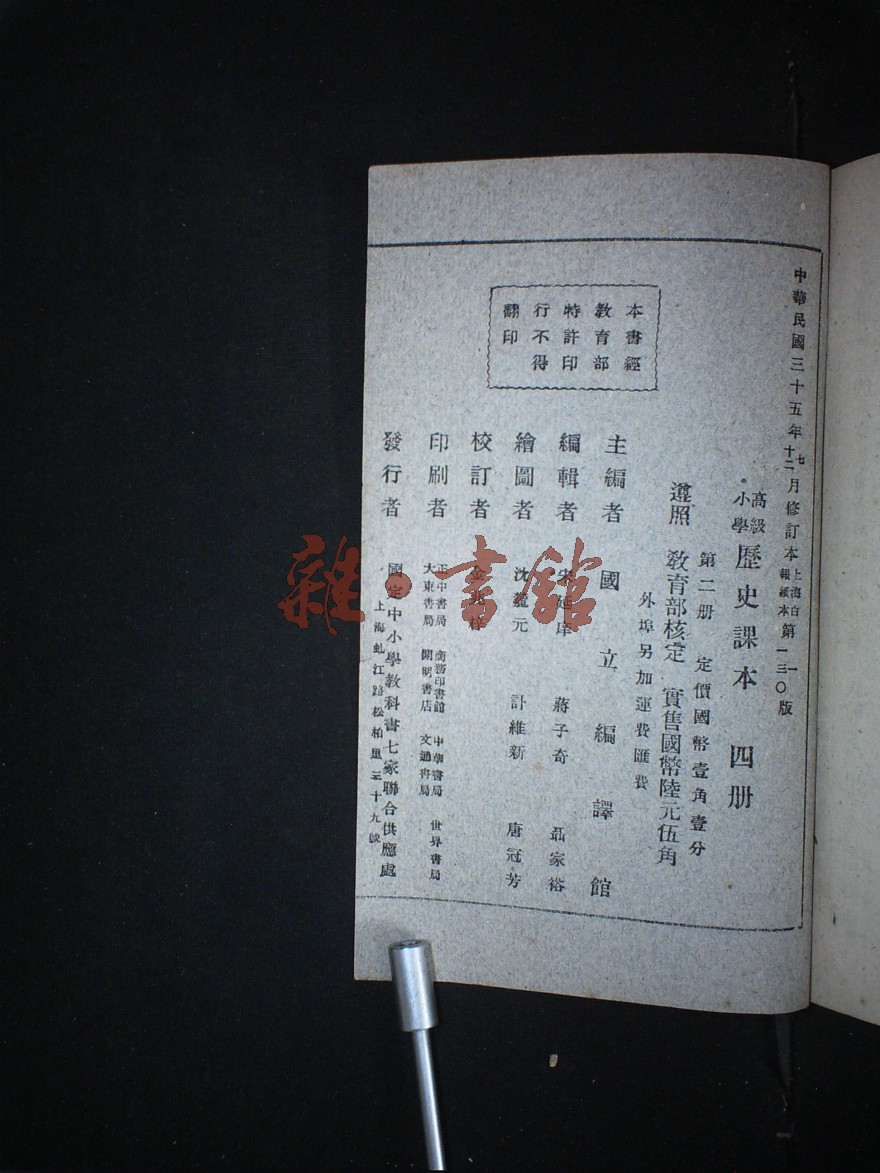 中華民國三十五年七十二月修訂本上海白報紙本第一三〇版
高級小學歷史課本 四册
第二册 定價國幣壹角壹分
遵照 教育部核定 實售國幣陸元伍角
外埠另加運費匯費
本書經
教育部
特許印
行不得
翻印
主編者 國立編譯館
編輯者 蔣子奇 聶家裕
繪圖者 沈元 計維新 唐冠芳
校訂者 金兆梓
印刷者 正中書局 商務印書館 中華書局 世界書局
大東書局 開明書店 文通書局
發行者 國定中小學教科書七家聯合供應處
上海虬江路松柏里三十九號
雜·書館